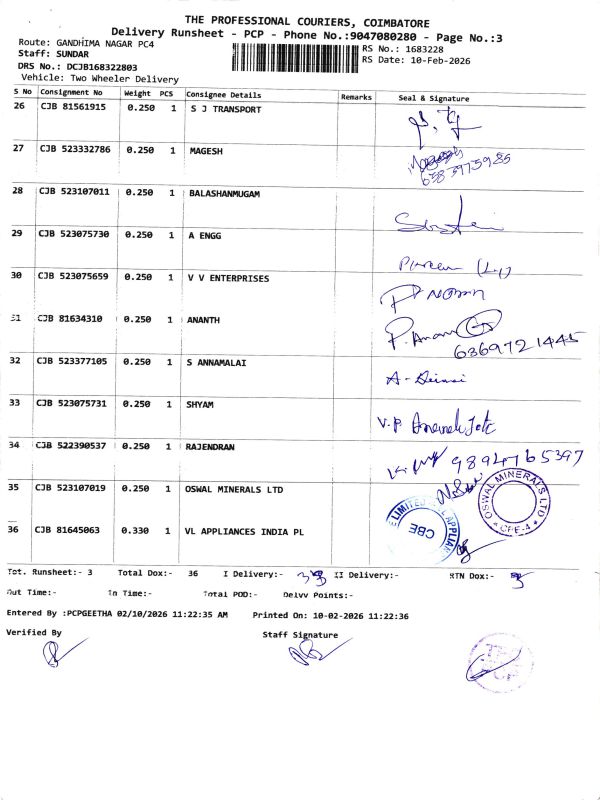 THE PROFESSIONAL COURIERS, COIMBATORE
Delivery Runsheet - PCP - Phone No.:9047080280 - Page No.:3
Route: GANDHIMA NAGAR PC4
RS No.: 1683228
Staff: SUNDAR
RS Date: 10-Feb-2026
DRS No.: DCJB168322803
Vehicle: Two Wheeler Delivery
S No Consignment No Weight PCS Consignee Details Remarks Seal & Signature
26 CJB 81561915 0.250 1 S J TRANSPORT
27 CJB 523332786 0.250 1 MAGESH
6383975985
28 CJB 523107011 0.250 1 BALASHANMUGAM
29 CJB 523075730 0.250 1 A ENGG
30 CJB 523075659 0.250 1 V V ENTERPRISES
31 CJB 81634310 0.250 1 ANANTH
6369721445
32 CJB 523377105 0.250 1 S ANNAMALAI
33 CJB 523075731 0.250 1 SHYAM
34 CJB 522390537 0.250 1 RAJENDRAN
9894765397
35 CJB 523107019 0.250 1 OSWAL MINERALS LTD
OSWAL MINERALS LTD
CBE-4
36 CJB 81645063 0.330 1 VL APPLIANCES INDIA PL
CBE
Tot. Runsheet:- 3 Total Dox:- 36 I Delivery:- II Delivery:- RTN Dox:-
Out Time:- In Time:- Total POD:- Delvv Points:-
Entered By :PCPGEETHA 02/10/2026 11:22:35 AM Printed On: 10-02-2026 11:22:36
Verified By Staff Signature